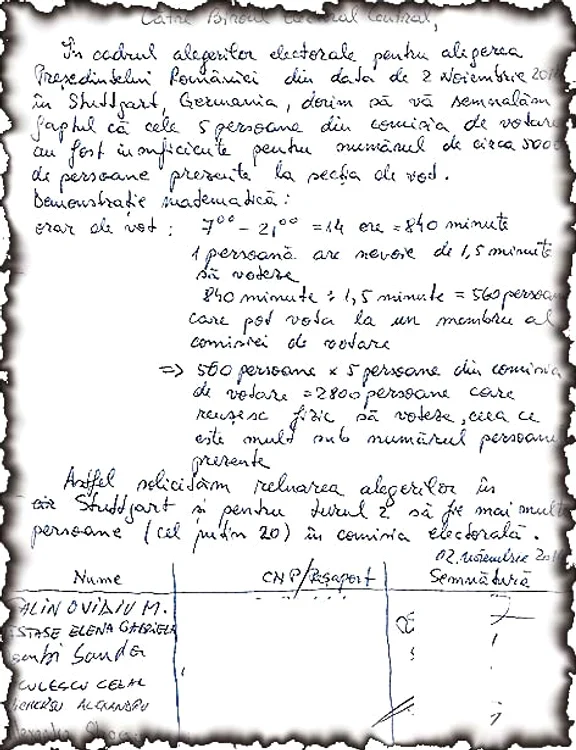 Către Biroul Electoral Central,
În cadrul alegerilor electorale pentru alegerea
Președintelui României din data de 2 Noiembrie 201
în Stuttgart, Germania, dorim să vă semnalăm
faptul că cele 5 persoane din comisia de votare
au fost insuficiente pentru numărul de circa 5000
de persoane prezente la secția de vot.
Demonstrație matematică:
orar de vot: 7⁰⁰ - 21⁰⁰ = 14 ore = 840 minute
1 persoană are nevoie de 1,5 minute
să voteze
840 minute : 1,5 minute = 560 persoan
care pot vota la un membru al
comisiei de votare
=> 560 persoane x 5 persoane din comisia
de votare = 2800 persoane care
reușesc fizic să voteze, ceea ce
este mult sub numărul persoane
prezente
Astfel solicităm reluarea alegerilor în
Stuttgart și pentru turul 2 să fie mai mult
persoane (cel puțin 20) în comisia electorală.
02. noiembrie 201
Nume CNP/Pașaport Semnătură
ALIN OVIDIU M.
STASE ELENA GABRIELA
Sandor
CULESCU
ALEXANDRU